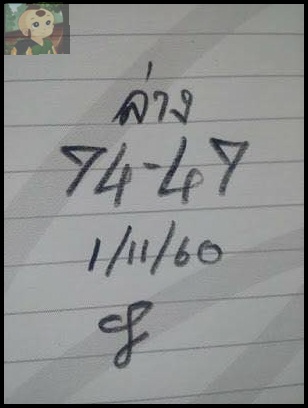 ล่าง
74-47
1/11/60